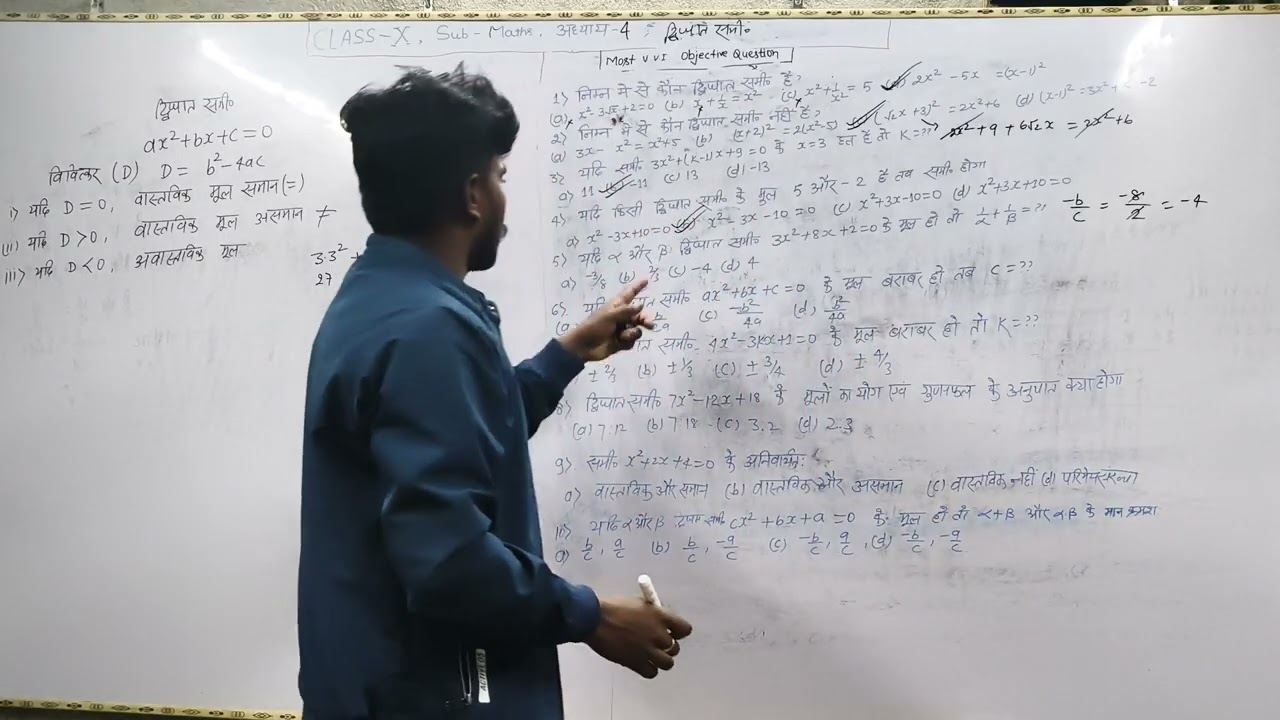 CLASS-X, Sub-Maths, अध्याय-4 : द्विघात समी०
Most V V I Objective Question
द्विघात समी०
ax²+bx+c=0
विवेत्कर (D) D = b²-4ac
i> यदि D=0, वास्तविक मूल समान (=)
(ii) यदि D>0, वास्तविक मूल असमान ≠
iii> यदि D<0, अवास्तविक मूल
3·3² +
27
1> निम्न में से कौन द्विघात समी० है?
(a) x²-3√x+2=0 (b) x+1/x=x² (c) x²+1/x²=5 2x²-5x=(x-1)²
2> निम्न में से कौन द्विघात समी० नहीं है?
(a) 3x-x²=x²+5 (b) (x+2)²=2(x²-5) (√2x+3)²=2x²+6 (d) (x-1)²=3x²+ -2
2x²+9+6√2x=2x²+6
3> यदि समी० 3x²+(K-1)x+9=0 के x=3 हल है तो K=??
a) 11 -11 (c) 13 (d) -13
4) यदि किसी द्विघात समी० के मूल 5 और -2 है तब समी० होगा
a) x²-3x+10=0 x²-3x-10=0 (c) x²+3x-10=0 (d) x²+3x+10=0
5) यदि α और β द्विघात समी० 3x²+8x+2=0 के मूल हो तो 1/α+1/β=?? -b/c = -8/2 = -4
a) -3/8 (b) 2/3 (c) -4 (d) 4
6> समी० ax²+bx+c=0 के मूल बराबर हो तब C=??
(c) -b²/4a (d) b²/4a
समी० 4x²-3Kx+1=0 के मूल बराबर हो तो K=??
±2/3 (b) ±1/3 (c) ±3/4 (d) ±4/3
8> द्विघात समी० 7x²-12x+18 के मूलों का योग एवं गुणनफल के अनुपात क्या होगा
(a) 7:12 (b) 7:18 (c) 3:2 (d) 2:3
9> समी० x²+2x+4=0 के
a) वास्तविक और समान (b) वास्तविक और असमान (c) वास्तविक नहीं (d)
10> यदि α और β समी० cx²+bx+a=0 के मूल हो तो α+β और αβ के मान क्रमशः
a) b/c, a/c (b) b/c, -a/c (c) -b/c, a/c, (d) -b/c, -a/c